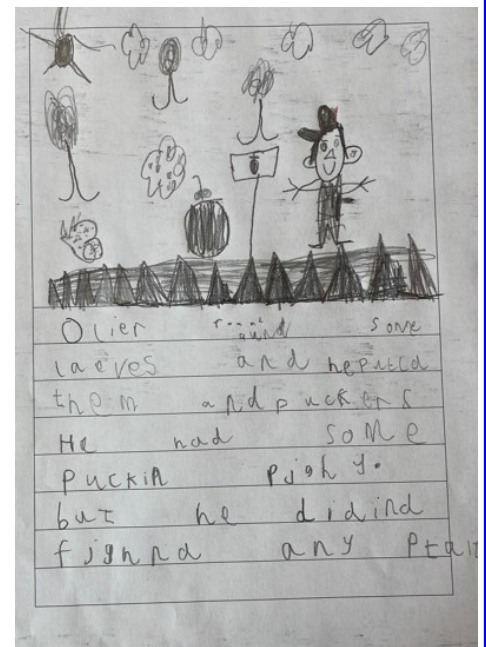 Olier some
laeves and heputid
them and puckers
He had some
puckin pighy.
but he didind
fighnd any